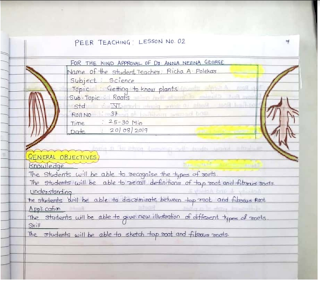 PEER TEACHING LESSON NO 02
FOR THE KIND APPROVAL OF DR ANNA NEENA GEORGE
Name of the student teacher Richa A.
Subject Science
Topic Getting to know plants
Sub Topic Roots
Std VI
Roll No 37
Time 25-30 Min
Date 20/09/2019
GENERAL OBJECTIVES
Knowledge
The students will be able to recognise the types of roots
The students will be able to recall definitions of tap root and fibrous roots
Understanding
The students will be able to discriminate between tap root and fibrous root
Application
The students will be able to give new illustration of different types of roots
Skill
The students will be able to sketch tap root and fibrous roots